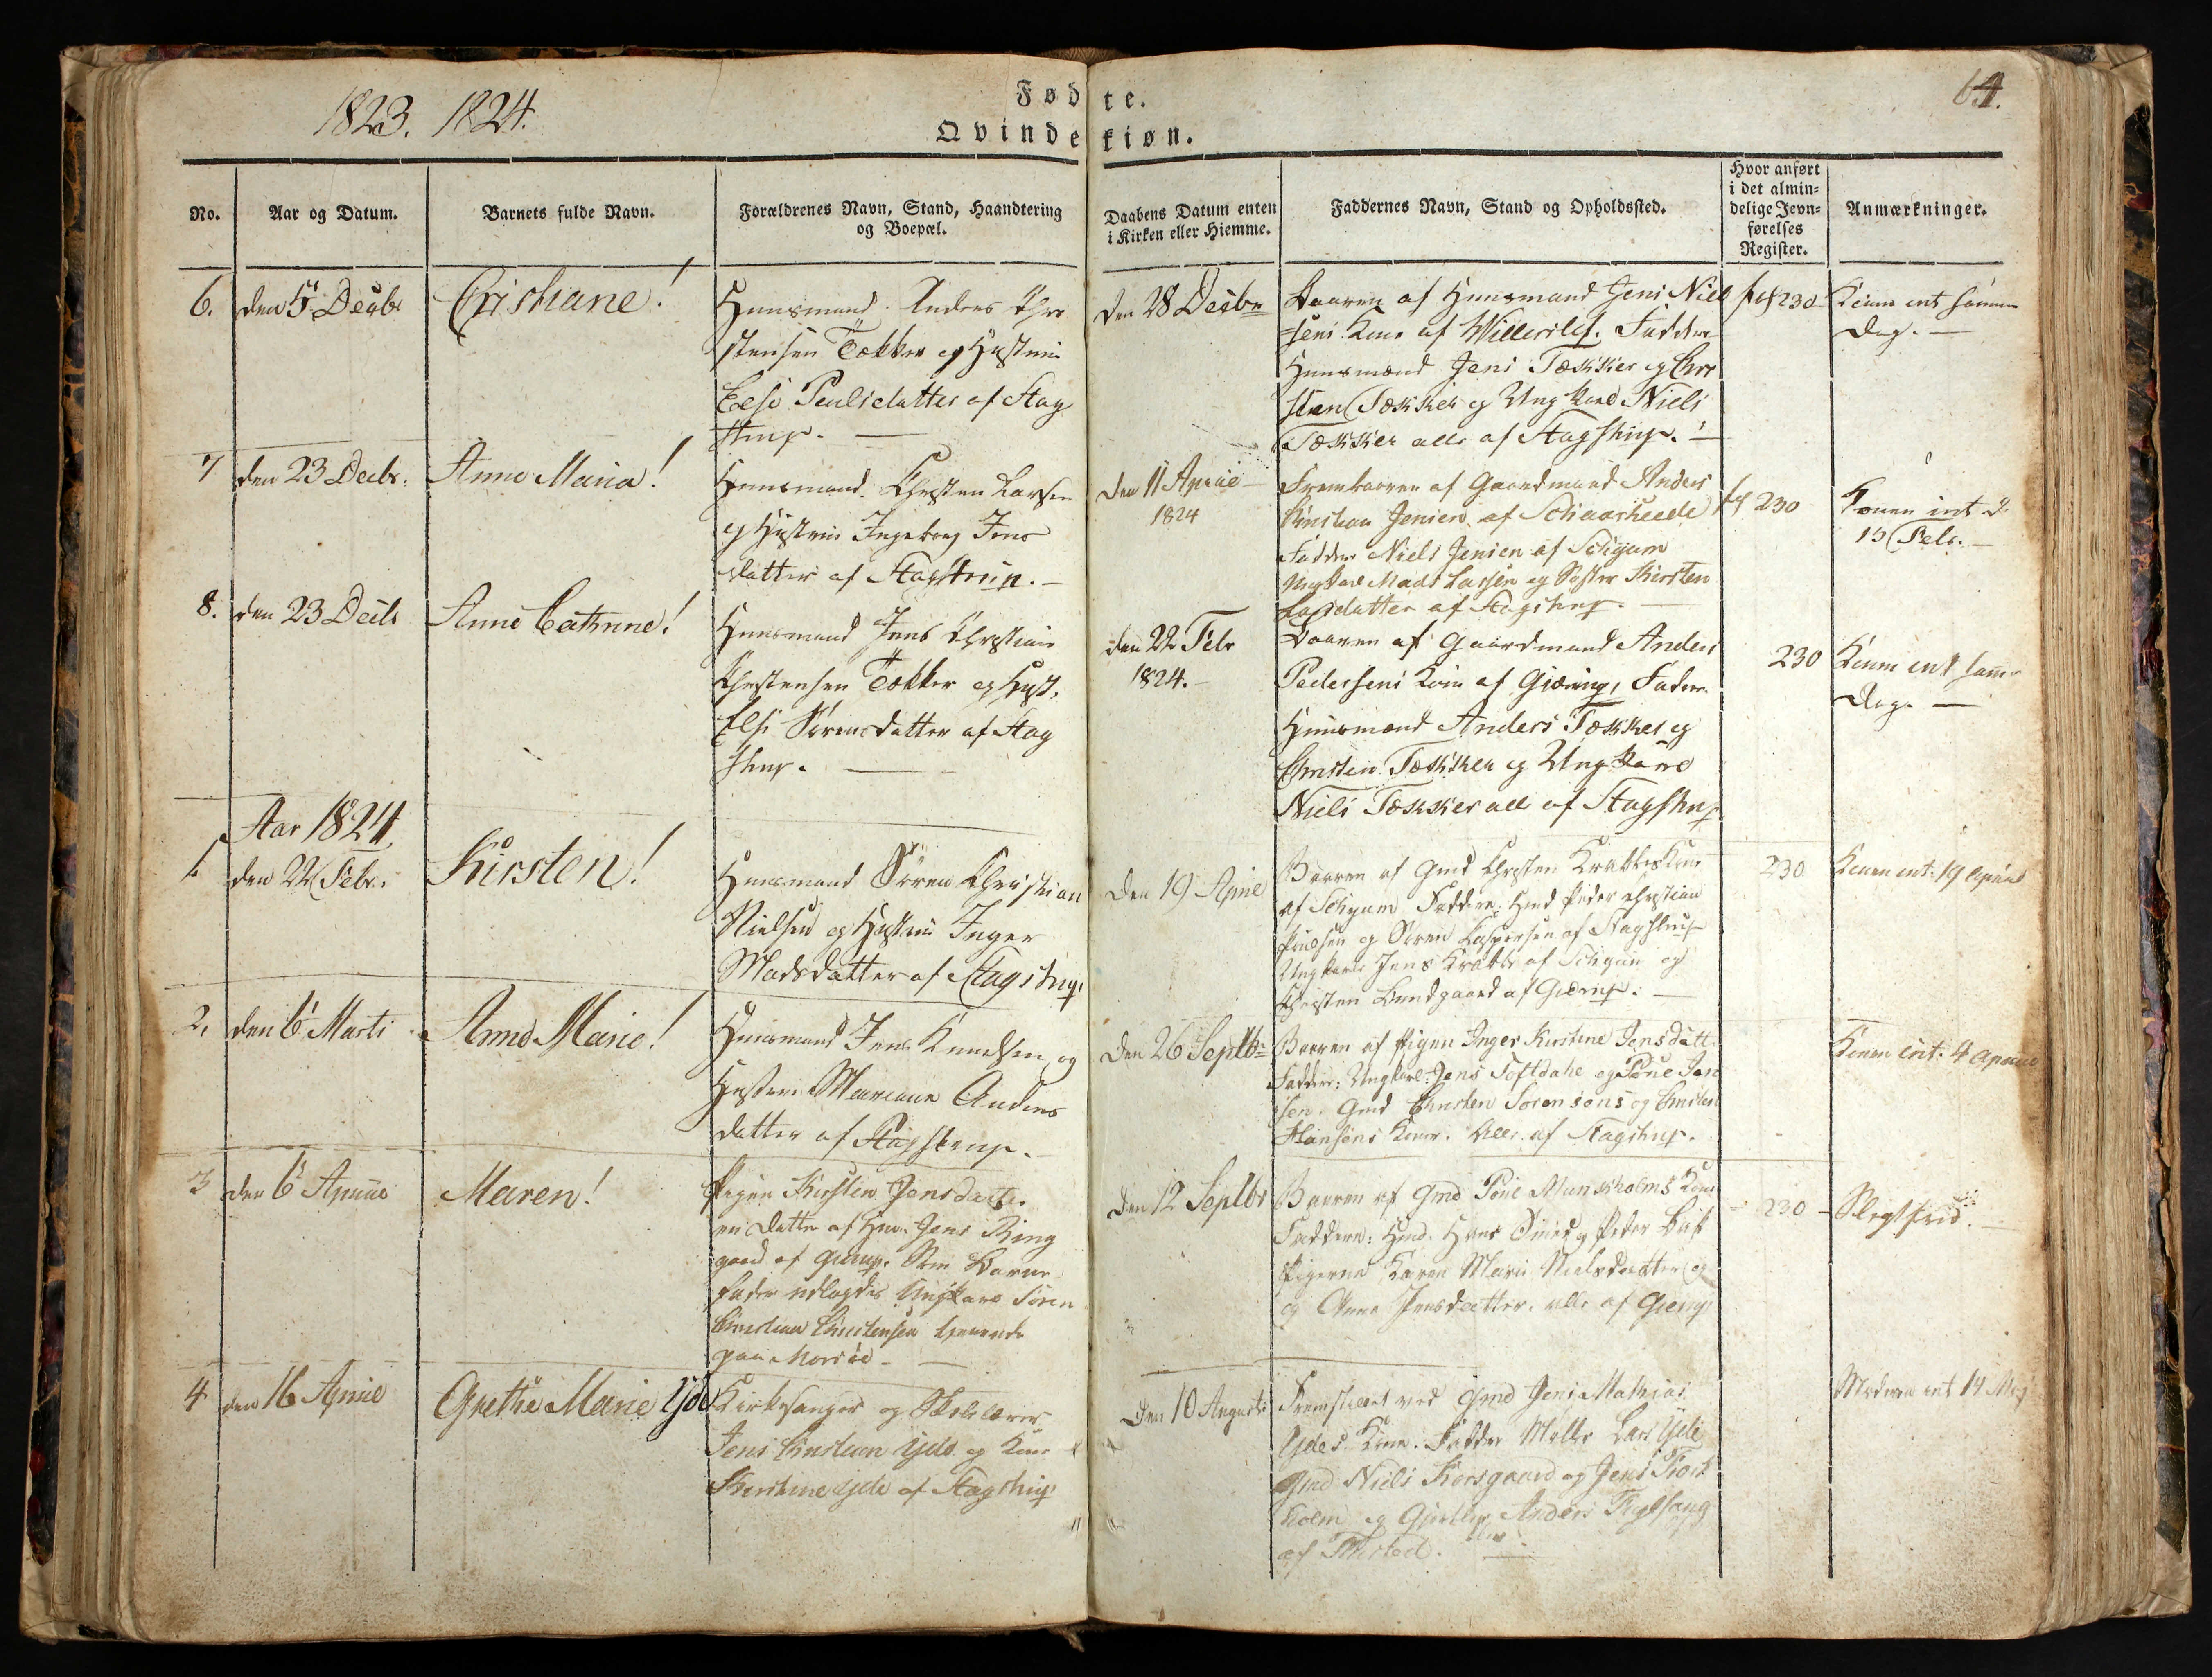 1823. 1824.
Fødte.
Qvindekiøn.
64.
No.
Aar og Datum.
Barnets fulde Navn.
Forældrenes Navn, Stand, Haandtering
og Boepæl.
Daabens Datum enten
i Kirken eller Hiemme.
Faddernes Navn, Stand og Opholdssted.
Hvor anført
i det almin-
delige Jevn-
førelses
Register.
Anmærkninger.
6.
den 5 Decbr
Cristiane!
Huusmand Anders Chri
stensen Tøkker og Hustrue
Else Poulsdatter af Stag
strup.
den 28 Decbr
Baaren af Huusmand Jens Niel
=sens Kone af Willerslef. Faddere
Huusmænd Jens Tøkker og Chri
sten Tøkker og Ungkarl Niels
Tøkker alle af Stagstrup.
fol 230
Konen int samme
Dag.
7
den 23 Decbr.
Anne Maria!
Huusmand Christen Larsen
og Hustrue Ingeborg Jens
datter af Stagstrup.
den 11 April
1824
Frembaaren af Gaardmand Anders
Christian Jensen af
Faddere Niels Jensen af Skyum
Ungkarl Mads Larsen og Søster Kirsten
Larsdatter af Stagstrup.
fol 230
Konen int d
15 Febr.
8.
den 23 Decb
Anne Cathrine!
Huusmand Jens Christian
Christensen Tøkker og Hust.
Else Sørensdatter af Stag
strup.
den 22 Febr
1824.
Baaren af Gaardmand Anders
Pedersens Kone af Giærup, Faddere
Huusmænd Anders Tøkker og
Christen Tøkker og Ungkarl
Niels Tøkker alle af Stagstrup
230
Konen int samme
Dag.
Aar 1824.
1.
den 22 Febr.
Kirsten!
Huusmand Søren Christian
Nielsen og Hustrue Inger
Madsdatter af Stagstrup.
Den 19 April
Baaren af Gmd Christen Krabbes Kone
af Skyum Faddere: Hmd Peder Christian
Poulsen og Søren Caspersen af Stagstrup
Ungkarle Jens Krabbe af Skyum og
Christen Bundgaard af Giærup.
230
Konen int: 19 April
2.
den 6 Marts
Anne Marie!
Huusmand Jens Knudsen og
Hustrue Mariane Anders
datter af Stagstrup.
Den 26 Septbr
Baaren af Pigen Inger Kirstine Jensdatt.
Faddere: Ungkarl Jens Toftdahl og Poul Jen
sen. Gmd Christen Sørensens og Christen
Hansens Koner. Alle af Stagstrup.
Konen int. 4 April
3
den 6 April
Maren!
Pigen Kirsten Jensdatter
en Datter af Hmd. Jens Ring
gaard af Giærup. Som Barne
fader udlagdes Ungkarl Søren
Christian Christensen tjenende
paa Morsøe
Den 12 Septbr
Baaren af Gmd Poul Munkholms Kone
Faddere: Hmd. Hans Smed og Peder
Pigerne Karen Marie Nielsdatter og
og Anne Jensdatter. alle af Giærup
230
Slegtfred.
4
den 16 April
Grethe Marie Yde
Kirkesanger og Skolelærer
Jens Christian Yde og Kone
Kirstine Yde af Stagstrup
Den 10 August
Fremstillet ved Gmd Jens Mathias
Ydes Kone. Faddere Møller Lars Yde
Gmd Niels Korsgaard og Jens
holm og Anders Fuglsang
af Thisted.
Moderen int 14 Maj